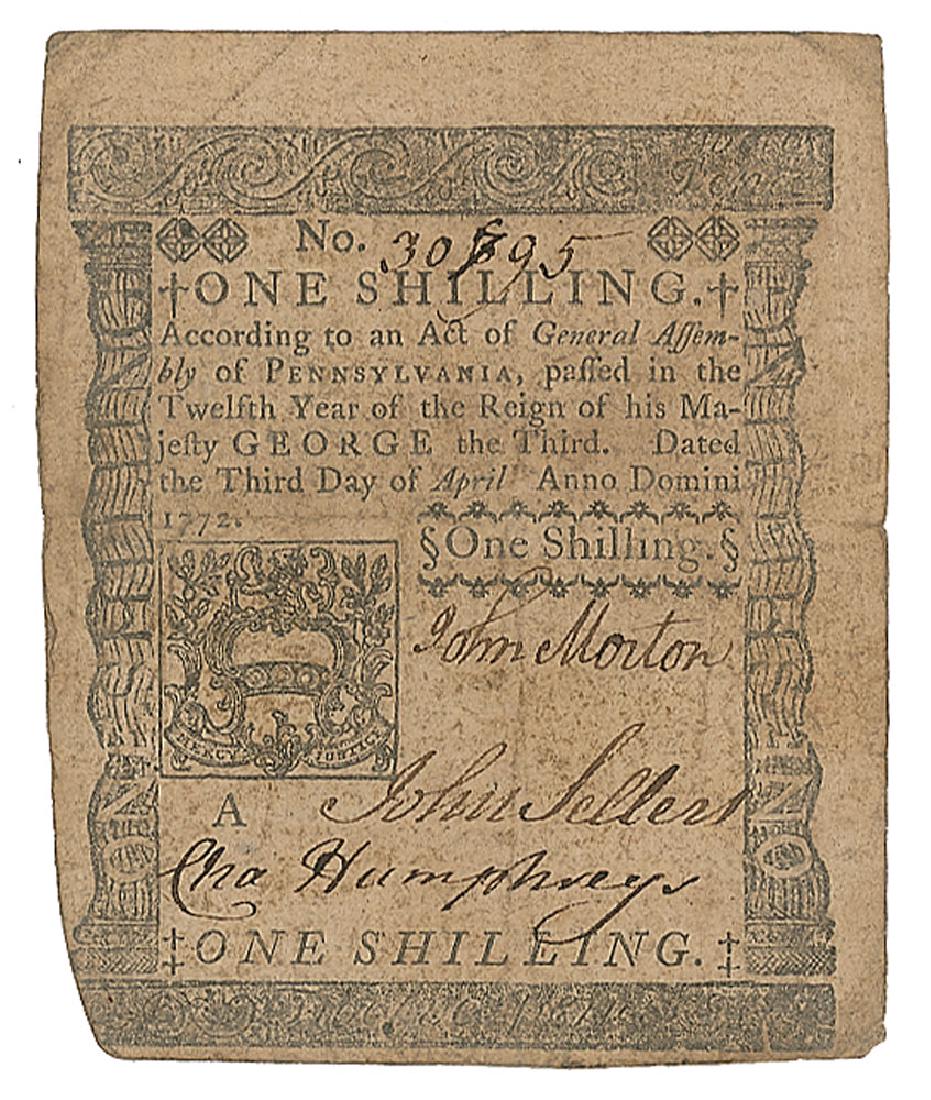 No. 30895
‡ONE SHILLING.‡
According to an Act of General Aſſem-
bly of PENNSYLVANIA, paſſed in the
Twelfth Year of the Reign of his Ma-
jeſty GEORGE the Third. Dated
the Third Day of April Anno Domini
1772.
§One Shilling.§
John Morton
MERCY JUSTICE
A
John Sellers
Cha Humphreys
‡ONE SHILLING.‡